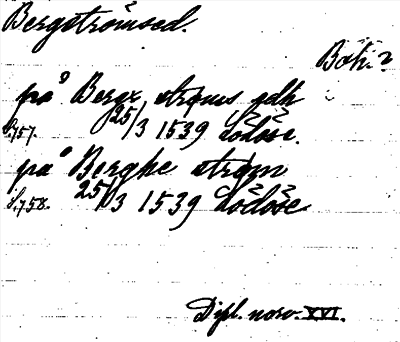 Bergströmsed.
Boh.?
på Bergx strøms gdh
S. 757. 25/3 1539 Lödöse.
på Berghe strøm
S. 758. 25/3 1539 Lödöse
Dipl. norv. XVI.